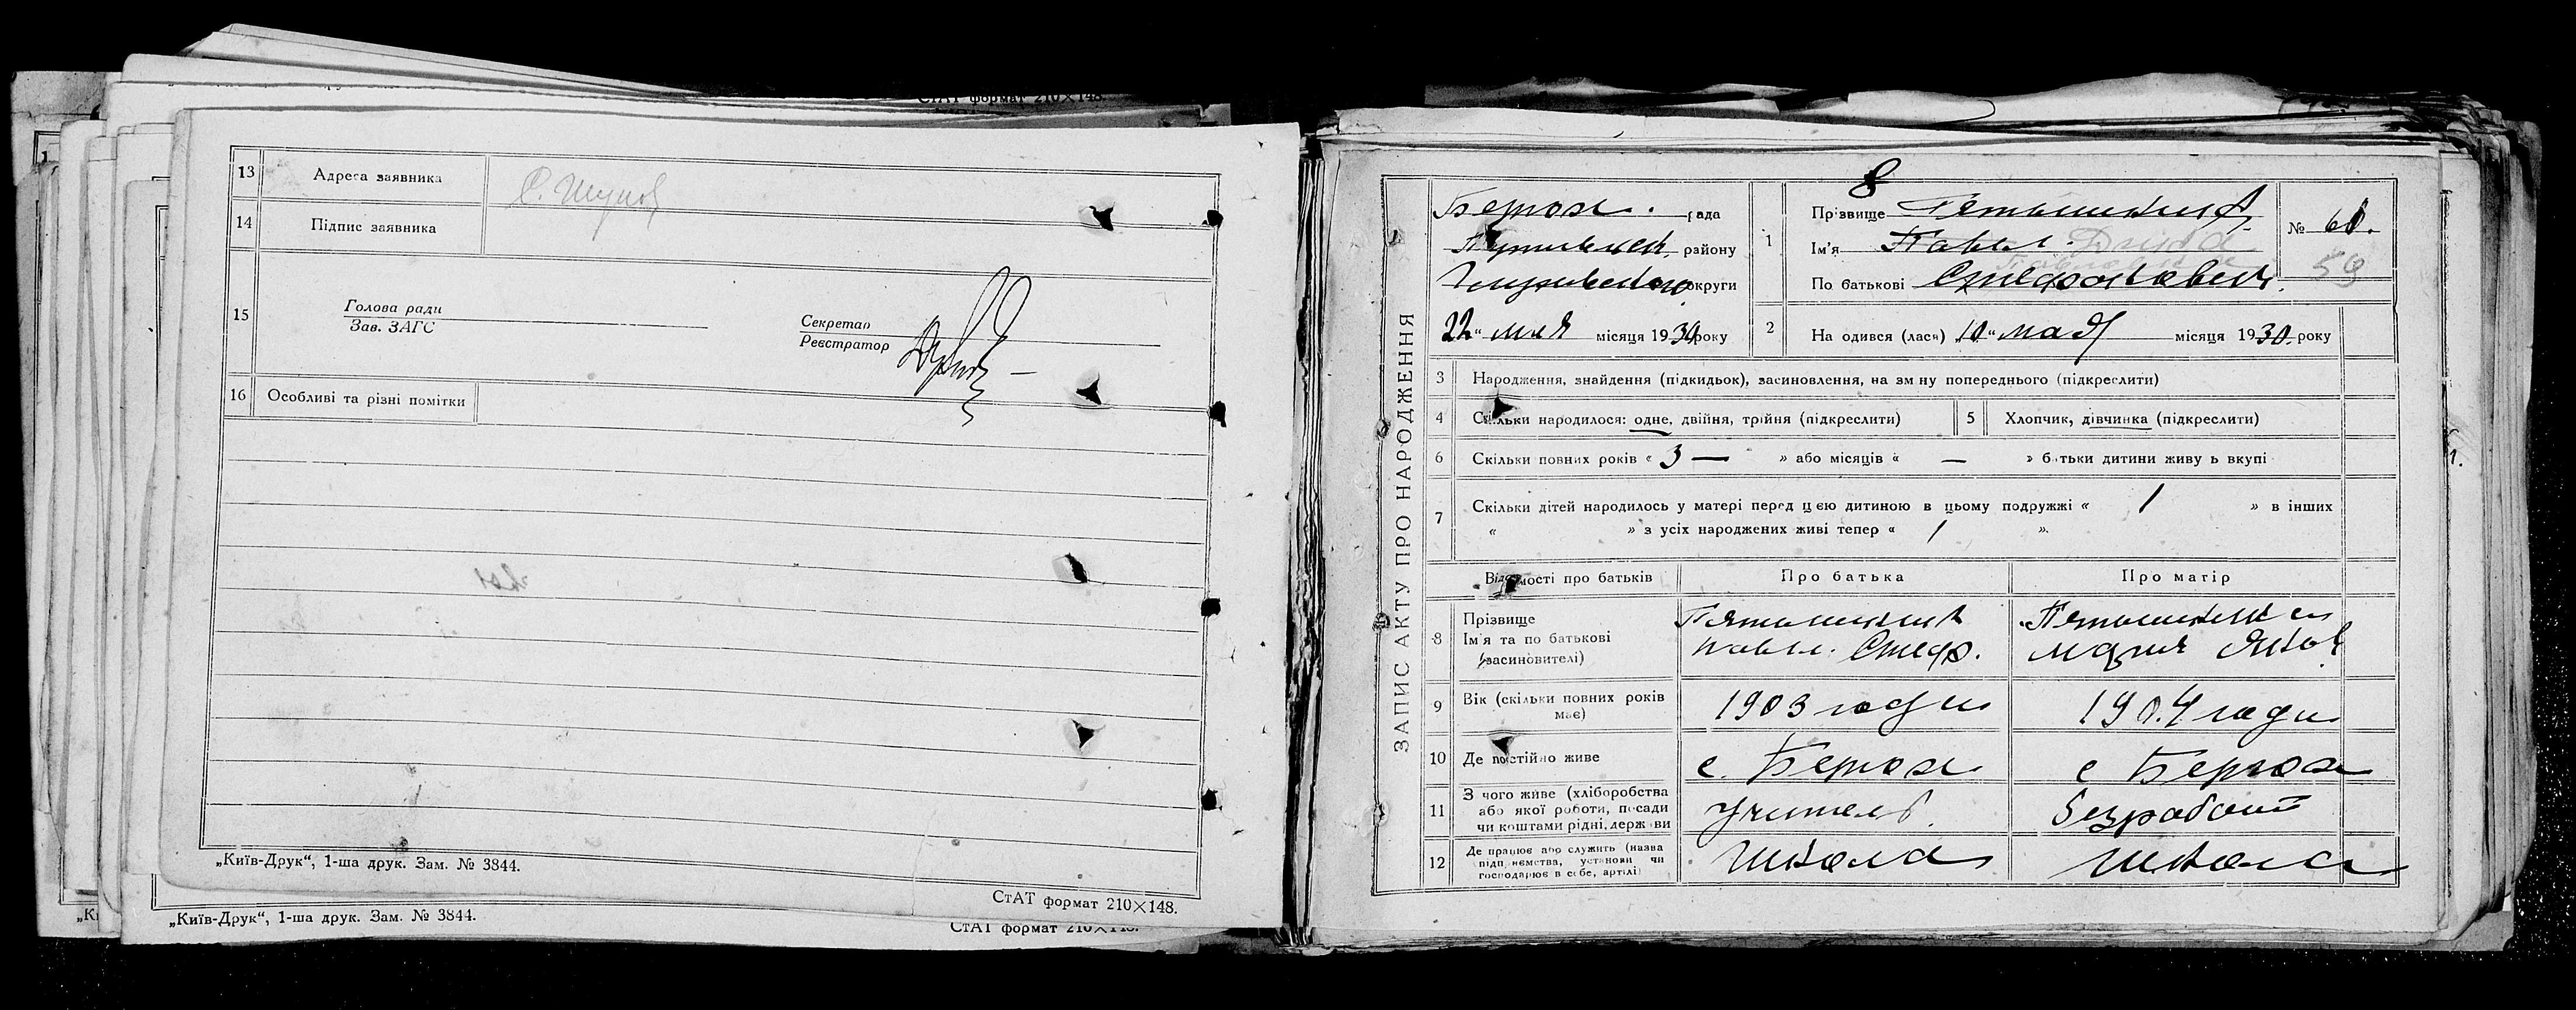 СтАТ формат 210×148.
13 Адреса заявника
14 Підпис заявника
15 Голова ради
Зав. ЗАГС
Секретар
Реєстратор
16 Особливі та різні помітки
„Київ-Друк“, 1-ша друк. Зам. № 3844.
СтАТ формат 210×148.
„Київ-Друк“, 1-ша друк. Зам. № 3844.
СтАТ формат 210×148.
ЗАПИС АКТУ ПРО НАРОДЖЕННЯ
8
Берюх. рада
району
округи
22 " мая місяця 1930 року
1 Прізвище
Ім'я Павел. Дина
По батькові Стефанович.
№ 60.
59
2 На одився (лася) „10" мая місяця 1930. року
3 Народження, знайдення (підкидьок), засиновлення, на зм ну попереднього (підкреслити)
4 Скільки народилося: одне, двійня, трійня (підкреслити) 5 Хлопчик, дівчинка (підкреслити)
6 Скільки повних років « 3 — » або місяців « — » батьки дитини живу ь вкупі
7 Скільки дітей народилось у матері перед цією дитиною в цьому подружжі « 1 » в інших
« » з усіх народжених живі тепер « 1 ».
Відомості про батьків Про батька Про матір
8 Прізвище
Ім'я та по батькові Павел. Стеф. Мария Яков
(засиновителі)
9 Вік (скільки повних років має) 1903 годи 1904 годи
10 Де постійно живе с. Берюх с Берюх
11 З чого живе (хліборобства
або якої роботи, посади
чи коштами рідні, держави учитель. безработ
12 Де працює або служить (назва
підприємства, установи чи
господарює в себе, артілі) Школа Школа